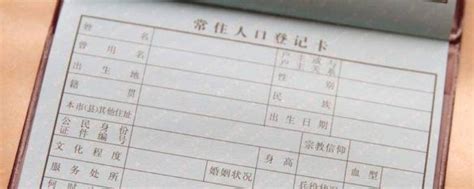 常住人口登记卡
姓 名 户主或与户主关系
曾用名 性 别
出生地 民 族
籍 贯 出生日期
本市(县)其他住址 宗教信仰
公民身份证件编号
文化程度 婚姻状况 血型
服务处所 兵役状况
何时